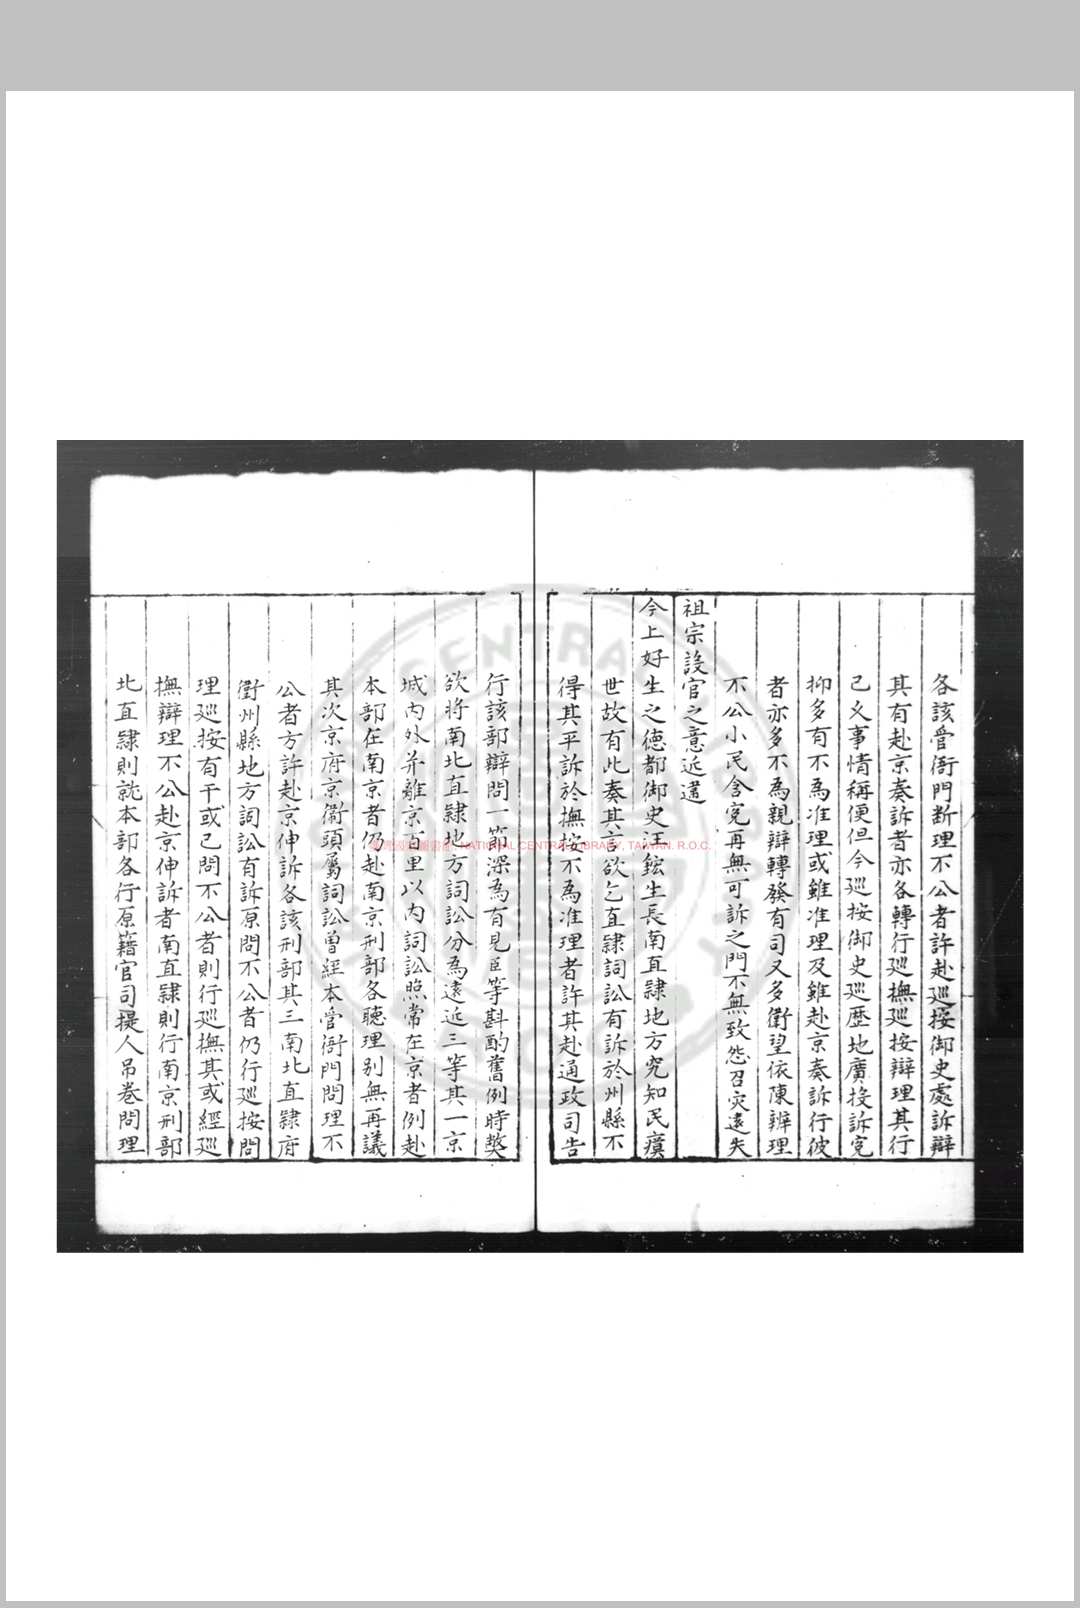 各該管衙門斷理不公者許赴廵按御史處訴辯
其有赴京奏訴者亦各轉行廵撫廵按辯理其行
已乆事情稱便但今廵按御史廵歷地廣投訴寃
抑多有不為准理或雖准理及雖赴京奏訴行彼
者亦多不為親辯轉發有司又多衝望依陳辨理
不公小民含寃再無可訴之門不無致怨召灾遠失
祖宗設官之意近遣
今上好生之德都御史汪鋐生長南直隸地方究知民瘼
世故有此奏其言欲乞直隸詞訟有訴於州縣不
得其平訴於撫按不為准理者許其赴通政司告
行該部辯問一節深為有見臣等斟酌舊例時獘
欲將南北直隸地方詞訟分為遠近三等其一京
城內外并離京百里以內詞訟照常在京者例赴
本部在南京者仍赴南京刑部各聽理別無再議
其次京府京衞頭屬詞訟曾經本管衙門問理不
公者方許赴京伸訴各該刑部其三南北直隸府
衛州縣地方詞訟有訴原問不公者仍行廵按問
理廵按有干或已問不公者則行廵撫其或經廵
撫辯理不公赴京伸訴者南直隸則行南京刑部
北直隸則就本部各行原籍官司提人吊卷問理
臺灣國家圖書館 NATIONAL CENTRAL LIBRARY, TAIWAN. R.O.C.